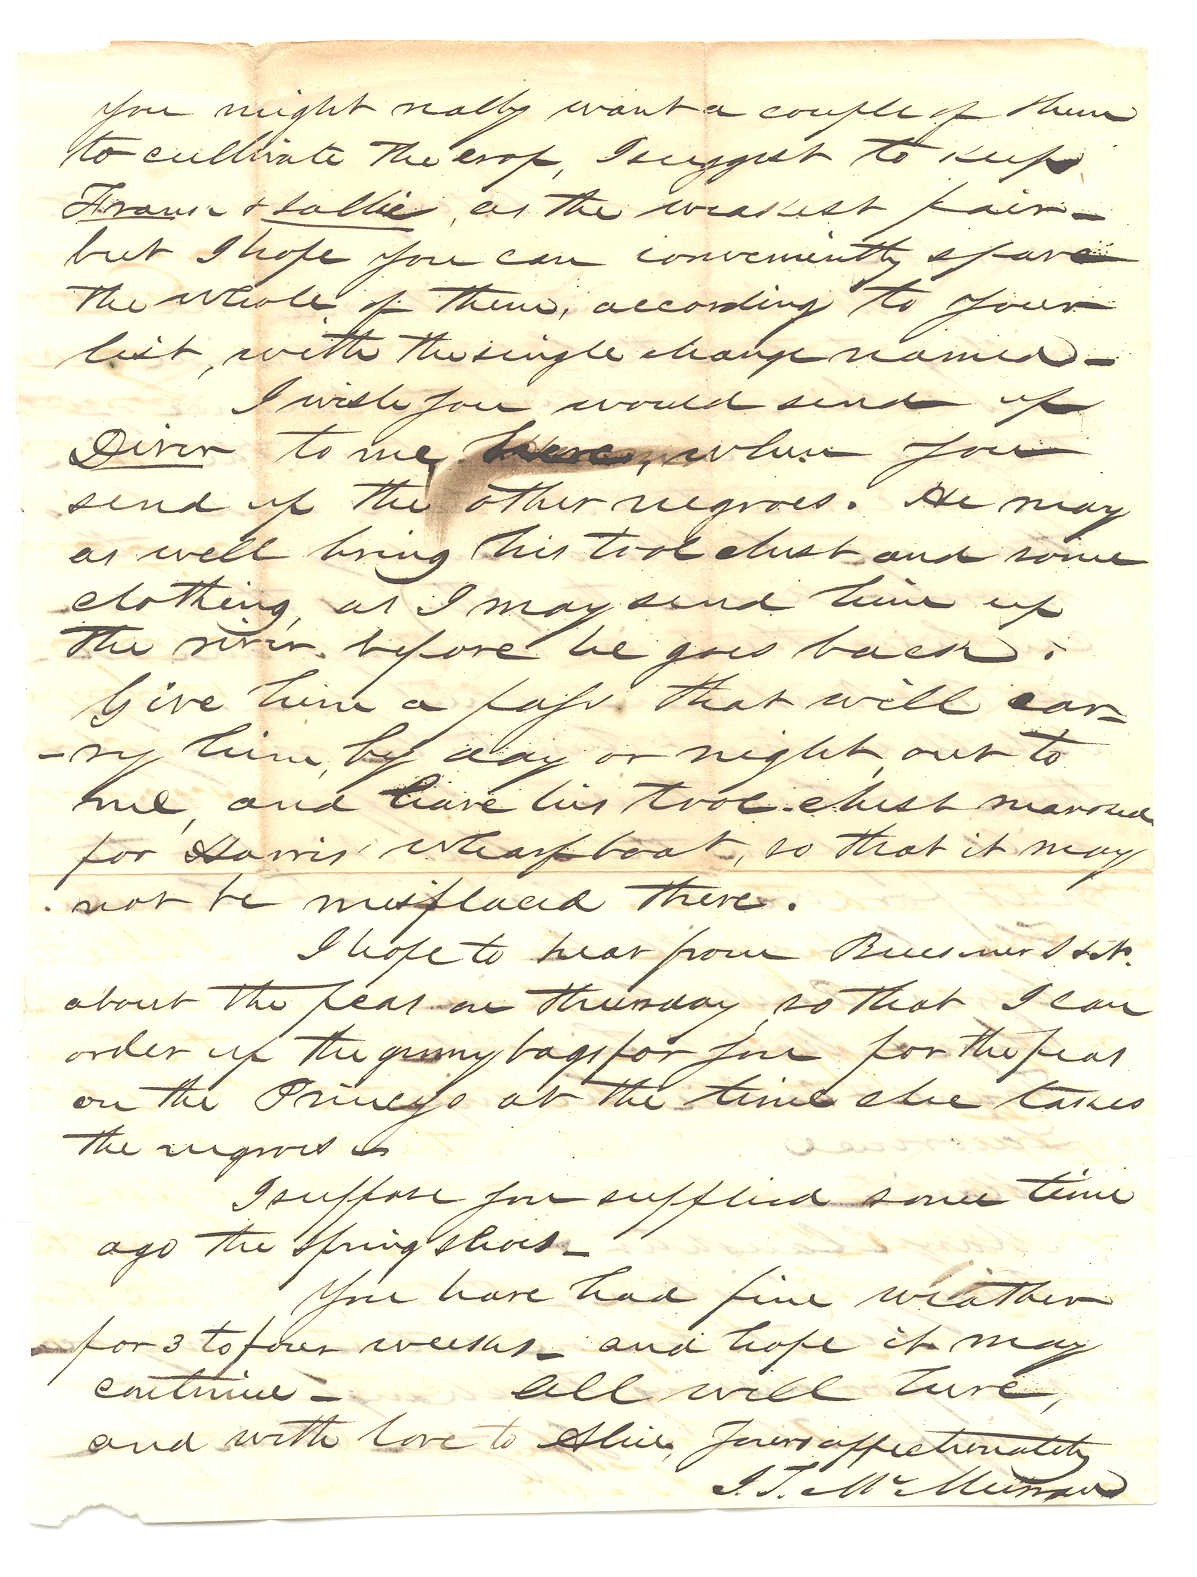 You might really want a couple of them
to cultivate the crop, I suggest to keep
Frank & Sallie, as the weakest pair -
but I hope you can conveniently spare
the whole of them, according to your
list, with the single change named -
I wish you would send up
to me here, when you
send up the other negroes. He may
as well bring his tool chest and some
clothing, as I may send him up
the river before he goes back.
Give him a pass that will car-
-ry him, by day or night, out to
me, and have his tool chest marked
for Harris' wharfboat, so that it may
not be misplaced there.
I hope to hear from
about the peas on thursday, so that I can
order up the gunny bags for you for the peas
on the Princess at the time she takes
the negroes
I suppose you supplied some time
ago the spring shoes -
You have had fine weather
for 3 to four weeks - and hope it may
continue - All well here,
and with love to Alie, Yours affectionately
J. T. McMurran